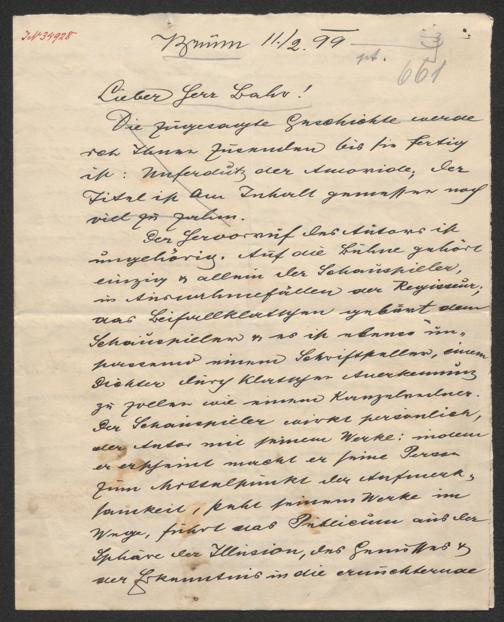 IN 34928
Brünn 11./2. 99
pt.
661
Lieber Herr Bahr!
Die zugesagte Geschichte werde
ich Ihnen zusenden bis sie fertig
ist: der
Titel ist dem Inhalt gemessen noch
viel zu zahm.
Der Hervorruf des Autors ist
ungehörig. Auf die Bühne gehört
einzig & allein der Schauspieler,
in Ausnahmefällen der Regisseur;
das Beifallklatschen gebürt dem
Schauspieler & es ist ebenso un-
passend einem Schriftsteller, einem
Dichter durch Klatschen Anerkennung
zu zollen wie einem Kanzelredner.
Der Schauspieler wirkt persönlich,
der Autor mit seinem Werke: indem
er erscheint macht er seine Person
zum Mittelpunkt der Aufmerk-
samkeit, steht seinem Werke im
Wege, führt das Publicum aus der
Sphäre der Illusion, des Genusses &
der Erkenntnis in die ernüchternde